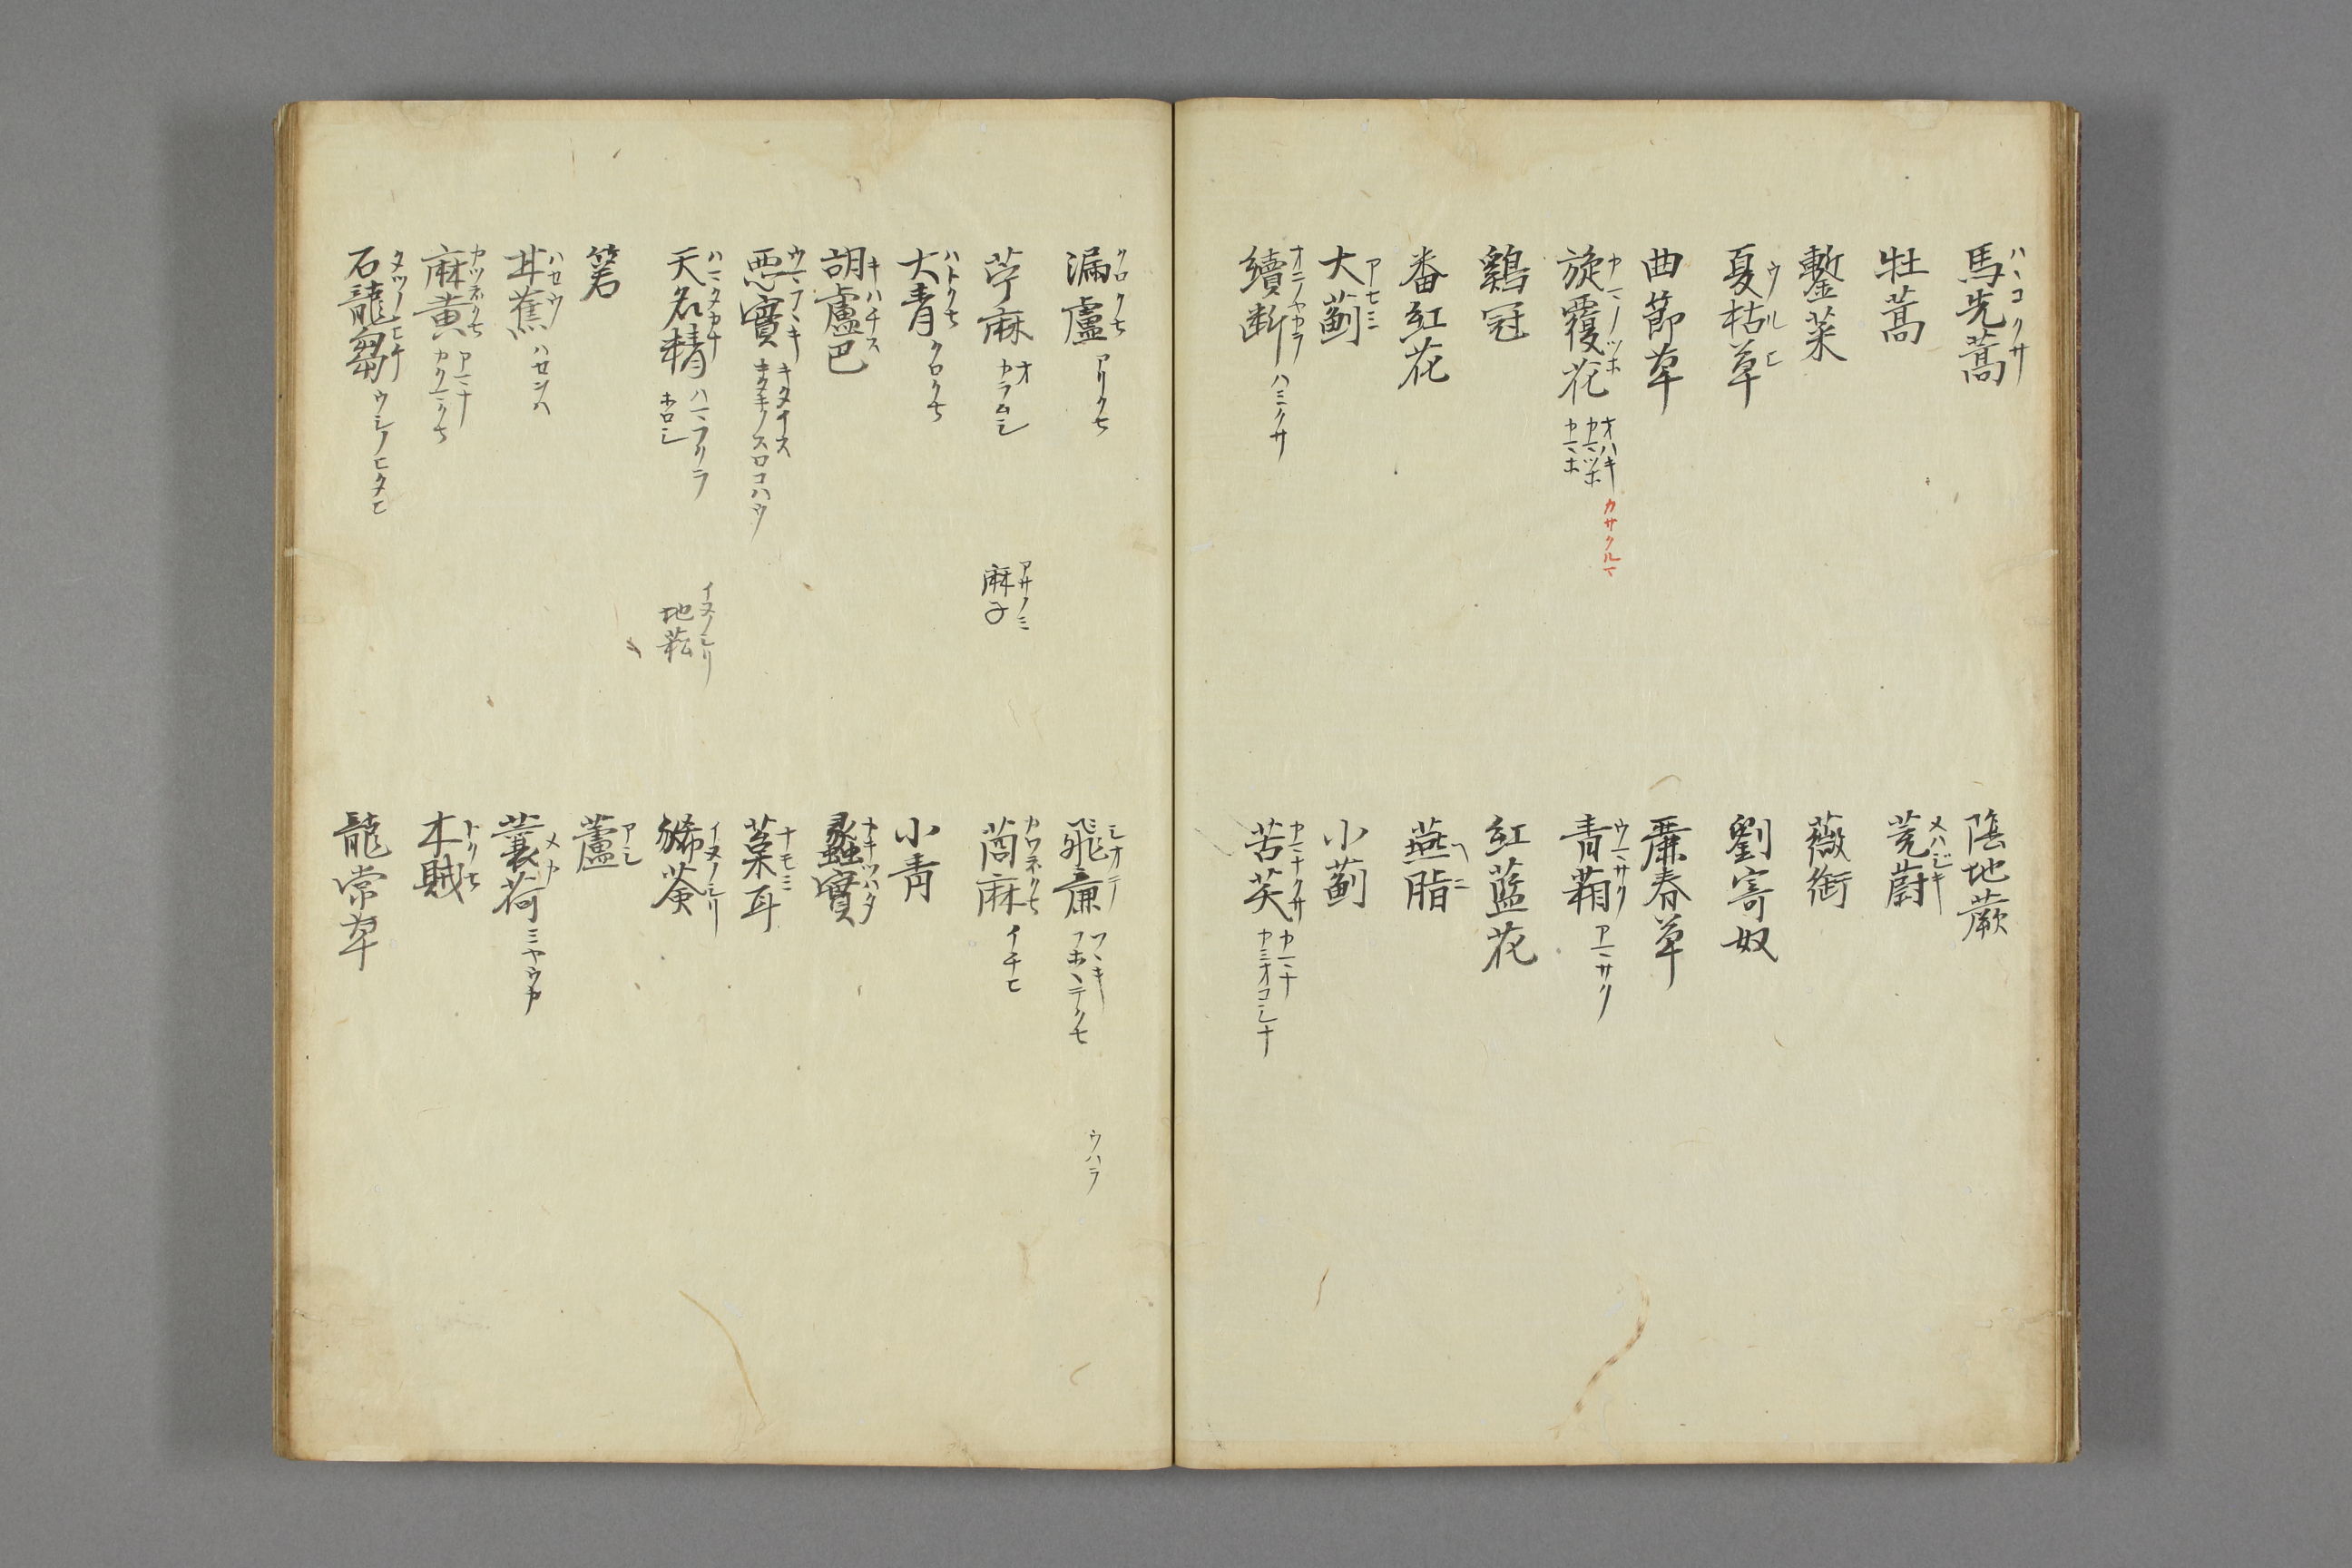 馬先蒿 ハヽコクサ
陰地蕨
牡蒿
茺蔚 メハジキ
鏨菜
薇銜
夏枯草 ウルヒ
劉寄奴
曲節草
麗春草
旋覆花 カマノツホ オハキ カマツホ カマホ カサクルマ
青葙 ウマサク アマサク
鷄冠
紅藍花
番紅花
燕脂 ヘニ
大薊 アセミ
小薊
續断 オニノヤカラ ハミクサ
苦芙 カマナクサ カマナ カミオコシナ
漏盧 クロクサ アリクサ
飛廉 シオテ フヽキ フホヽテクサ ウハラ
苧麻 オ カラムシ 麻子 アサノミ
茼麻 カワネクサ イチヒ
大青 ハトクサ クロクサ
小青
胡盧巴 キハチス
蠡實 カキツハタ
悪實 ウマフヽキ キタイス キタキノスロコハウ
葈耳 ナモミ
天名精 ハマタカナ ハマフクラ ホロシ 地菘 イヌノシリ
豨薟 イヌノシリ
箬
蘆 アシ
甘蕉 ハセウ ハセヲハ
蘘荷 メカ ミヤウカ
麻黄 カツネクサ アマナ カクマクサ
木賊 トクサ
石龍芻 タツノヒケ ウシノヒタヒ
龍常草